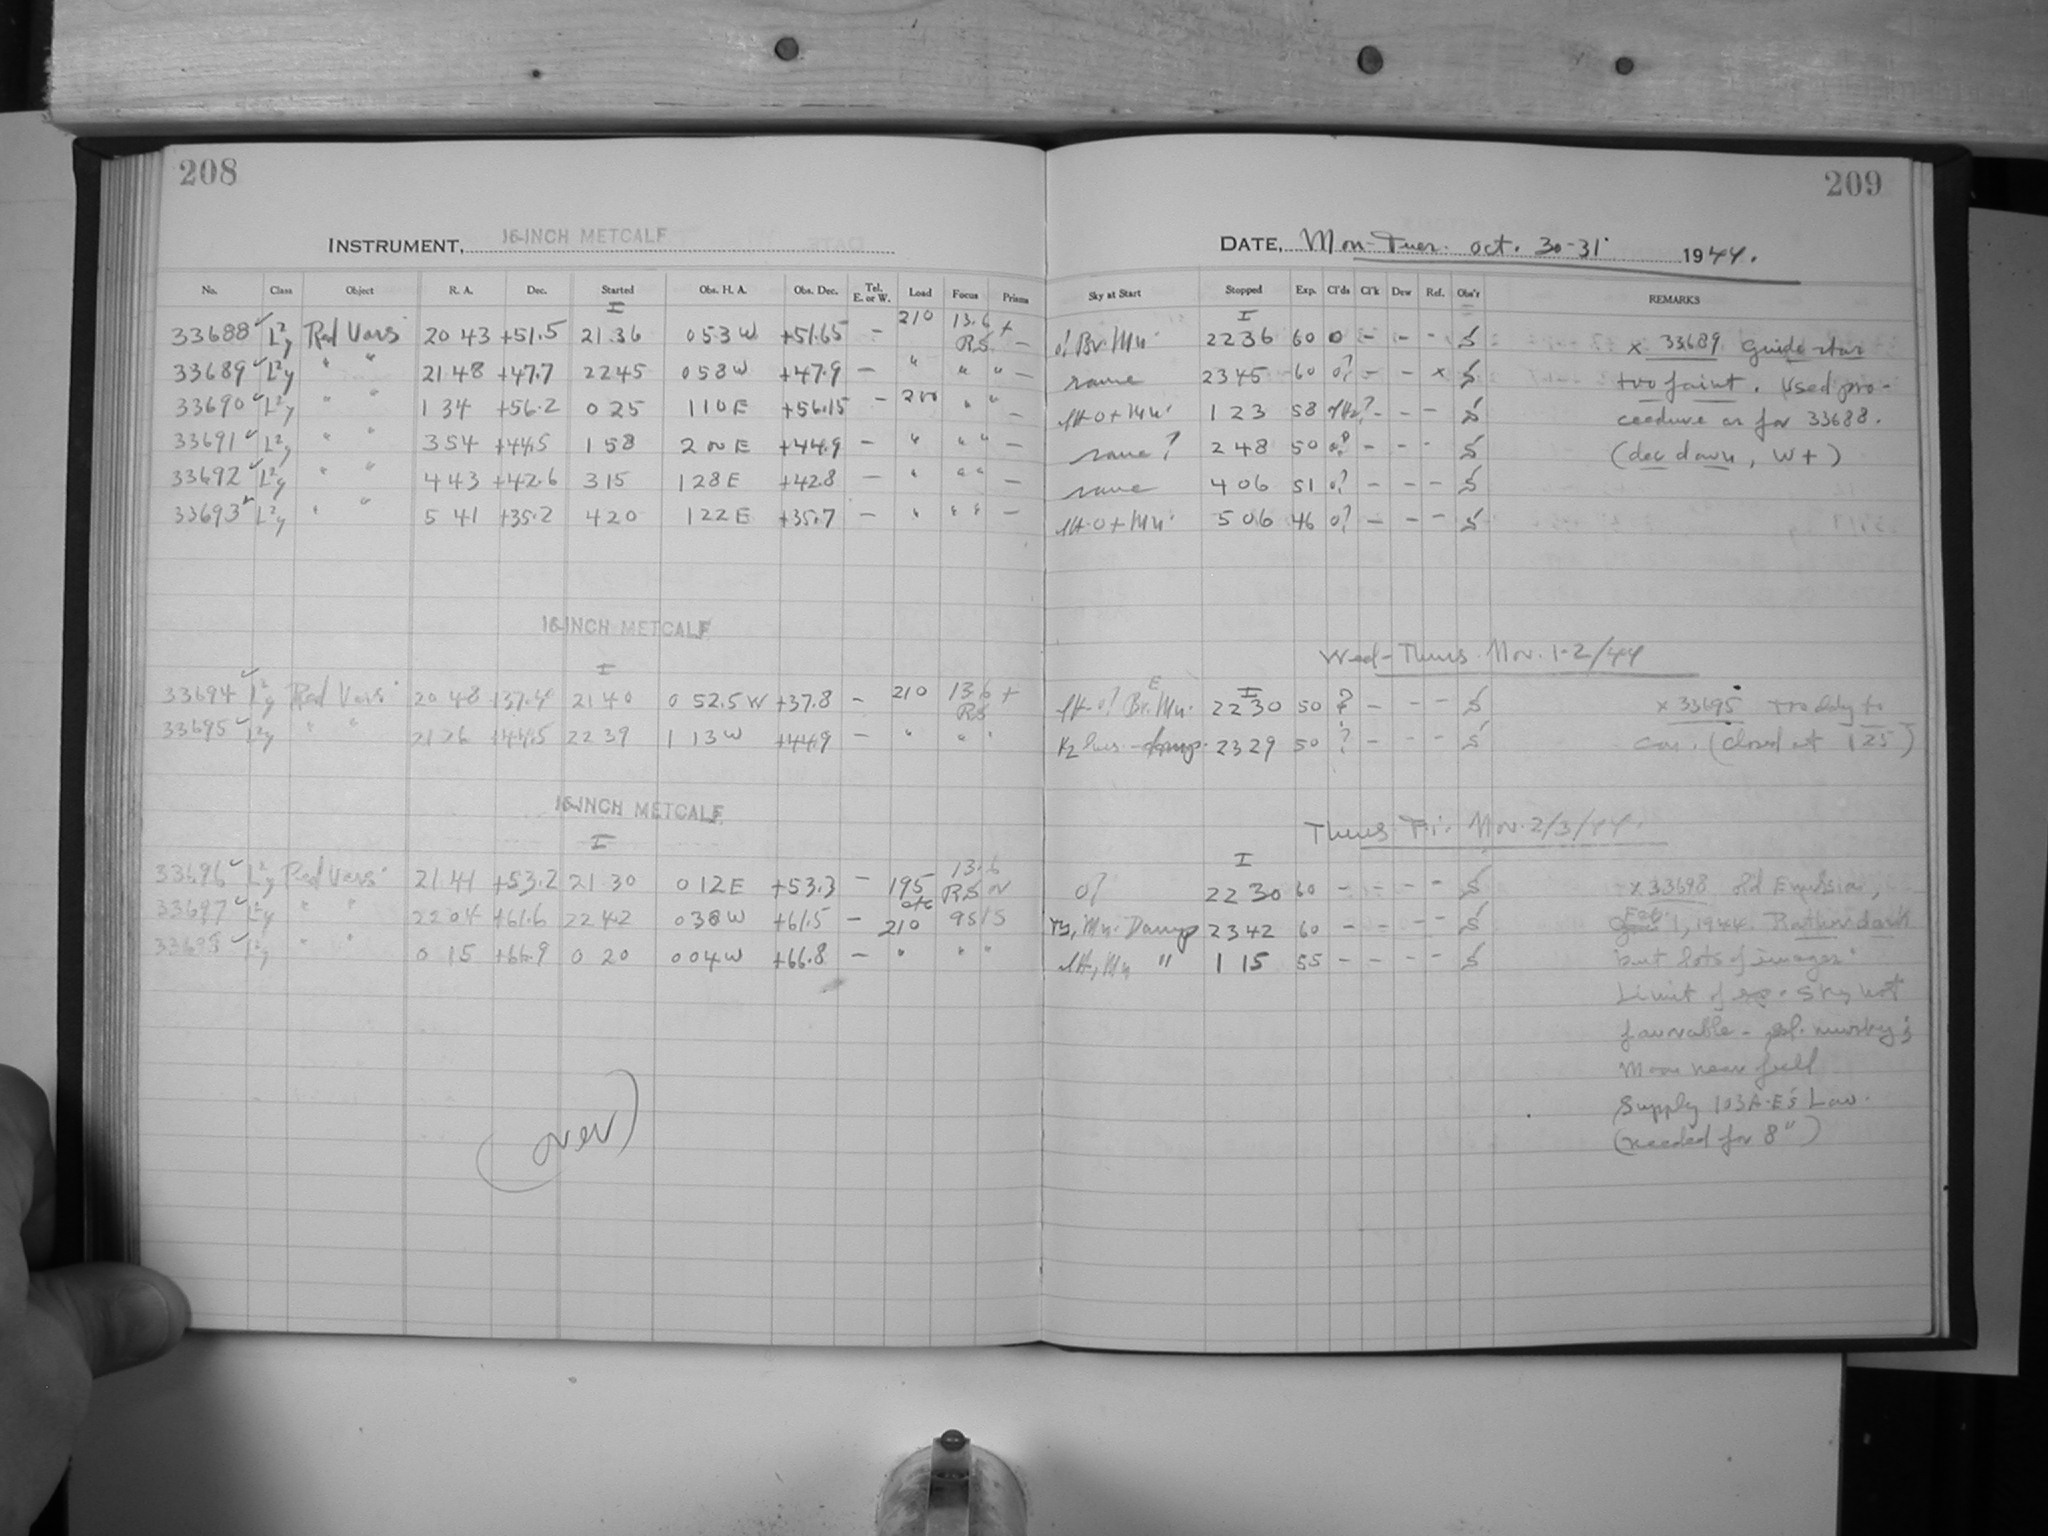 208
209
INSTRUMENT, 16-INCH METCALF
DATE, Mon-Tues. Oct. 30-31 1944.
No. Class Object R. A. Dec. Started Obs. H. A. Obs. Dec. Tel. E. or W. Load Focus Prisms Sky at Start Stopped Exp. Cl'ds Cl'k Dew Ref. Obs'r REMARKS
I I
33688 ✓ L²y Red Vars 20 43 +51.5 21 36 0 53 W +51.65 – 210 13.6 + RS – o? Br. Mn 22 36 60 0 – – – S x 33689 Guide star
33689 ✓ L²y " " 21 48 +47.7 22 45 0 58 W +47.9 – " " " – same 23 45 60 0? – – x S too faint. Used pro-
33690 ✓ L²y " " 1 34 +56.2 0 25 1 10 E +56.15 – 200 " " – 1 23 58 – – – S ceedure as for 33688.
33691 ✓ L²y " " 3 54 +44.5 1 58 2 00 E +44.9 – " " " – same? 2 48 50 0? – – – S (dec down, W+)
33692 ✓ L²y " " 4 43 +42.6 3 15 1 28 E +42.8 – " " " – same 4 06 51 0? – – – S
33693 ✓ L²y " " 5 41 +35.2 4 20 1 22 E +35.7 – " " " – 5 06 46 0? – – – S
16-INCH METCALF
Wed-Thurs. Nov. 1-2/44
I I
33694 ✓ L²y Red Vars 20 48 +37.4 21 40 0 52.5 W +37.8 – 210 13.6 + RS Br. Mn. E 22 30 50 ? – – – S x 33695 too
33695 ✓ L²y " " 21 26 +44.5 22 39 1 13 W +44.9 – " " " Hz 23 29 50 ? – – – S (closed at 1 25)
16-INCH METCALF
Thurs Fri. Nov. 2/3/44.
I I
33696 ✓ L²y Red Vars 21 41 +53.2 21 30 0 12 E +53.3 – 195 13.6 RS N o? 22 30 60 – – – – S x 33698 old Emulsion,
33697 ✓ L²y " " 22 04 +61.6 22 42 0 38 W +61.5 – 210 9515 Mn. Damp 23 42 60 – – – – S Feb 1, 1944. Rather dark
33698 ✓ L²y " " 0 15 +66.9 0 20 0 04 W +66.8 – " " " Mn " 1 15 55 – – – – S but lots of images.
Limit of Sky not
favorable – murky;
Moon near field
Supply 103A-E's Low.
(needed for 8")
(over)